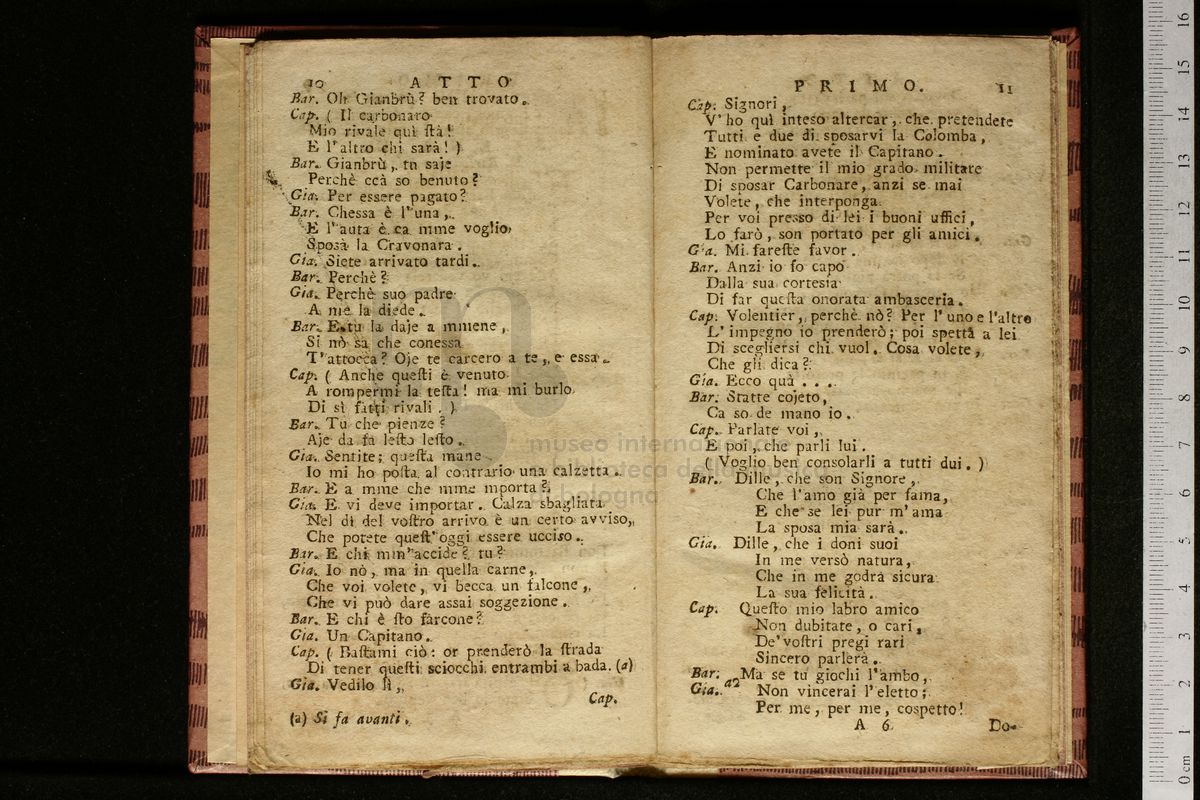 10 ATTO
Bar. Oh Gianbrù? ben trovato.
Cap. ( Il carbonaro
Mio rivale quì ſtà!
E l'altro chi sarà! )
Bar. Gianbrù, tu saje
Perchè ccà so benuto?
Gia. Per essere pagato?
Bar. Chessa è l'una,
E l'auta è ca mme voglio
Sposà la Cravonara.
Gia. Siete arrivato tardi.
Bar. Perchè?
Gia. Perchè suo padre
A me la diede.
Bar. E tu la daje a mmene,
Si nò sa che conessa
T'attocca? Oje te carcero a te, e essa.
Cap. ( Anche queſti è venuto
A rompermi la teſta! ma mi burlo
Di sì fatti rivali. )
Bar. Tu che pienze?
Aje da fa leſto leſto.
Gia. Sentite; queſta mane
Io mi ho poſta al contrario una calzetta.
Bar. E a mme che mme mporta?
Gia. E vi deve importar. Calza sbagliata
Nel dì del voſtro arrivo è un certo avviso,
Che potete queſt'oggi essere ucciso.
Bar. E chi mm'accide? tu?
Gia. Io nò, ma in quella carne,
Che voi volete, vi becca un falcone,
Che vi può dare assai soggezione.
Bar. E chi è ſto farcone?
Gia. Un Capitano.
Cap. ( Baſtami ciò: or prenderò la ſtrada
Di tener queſti sciocchi entrambi a bada. (a)
Gia. Vedilo lì,
Cap.
(a) Si fa avanti.
PRIMO. 11
Cap. Signori,
V'ho quì inteso altercar, che pretendete
Tutti e due di sposarvi la Colomba,
E nominato avete il Capitano.
Non permette il mio grado militare
Di sposar Carbonare, anzi se mai
Volete, che interponga
Per voi presso di lei i buoni uffici,
Lo farò, son portato per gli amici.
Gia. Mi fareſte favor.
Bar. Anzi io fo capo
Dalla sua cortesia
Di far queſta onorata ambasceria.
Cap. Volentier, perchè nò? Per l'uno e l'altro
L'impegno io prenderò; poi spetta a lei
Di scegliersi chi vuol. Cosa volete,
Che gli dica?
Gia. Ecco quà . . .
Bar. Statte cojeto,
Ca so de mano io.
Cap. Parlate voi,
E poi, che parli lui.
( Voglio ben consolarli a tutti dui. )
Bar. Dille, che son Signore,
Che l'amo già per fama,
E che se lei pur m'ama
La sposa mia sarà.
Gia. Dille, che i doni suoi
In me versò natura,
Che in me godrà sicura
La sua felicità.
Cap. Queſto mio labro amico
Non dubitate, o cari,
De'voſtri pregi rari
Sincero parlerà.
Bar. Ma se tu giochi l'ambo,
Gia. a2 Non vincerai l'eletto;
Per me, per me, cospetto!
A 6 Do-
museo internazionale
biblioteca della musica
di bologna
0 cm 1 2 3 4 5 6 7 8 9 10 11 12 13 14 15 16